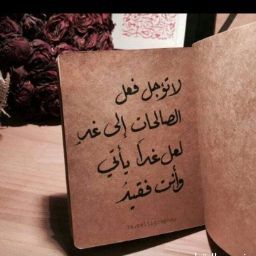 لا تؤجل فعل
الصالحات إلى غدٍ
لعل غداً يأتي
وأنت فقيدُ